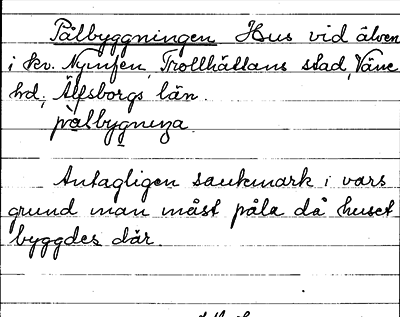 Pålbyggningen Hus vid älven
i kv. Nymfen, Trollhättans stad, Väne
hd, Älfsborgs län.
pàlbygneŋa
Antagligen sankmark i vars
grund man måst påla då huset
byggdes där.